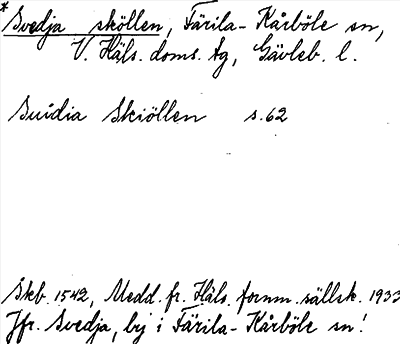 * Svedja sköllen, Färila-Kårböle sn,
V. Häls. doms. tg, Gävleb. l.
Suidia Skiöllen s. 62
Skb. 1542, Medd. fr. Häls. fornm. sällsk. 1933
Jfr. Svedja, by i Färila-Kårböle sn!